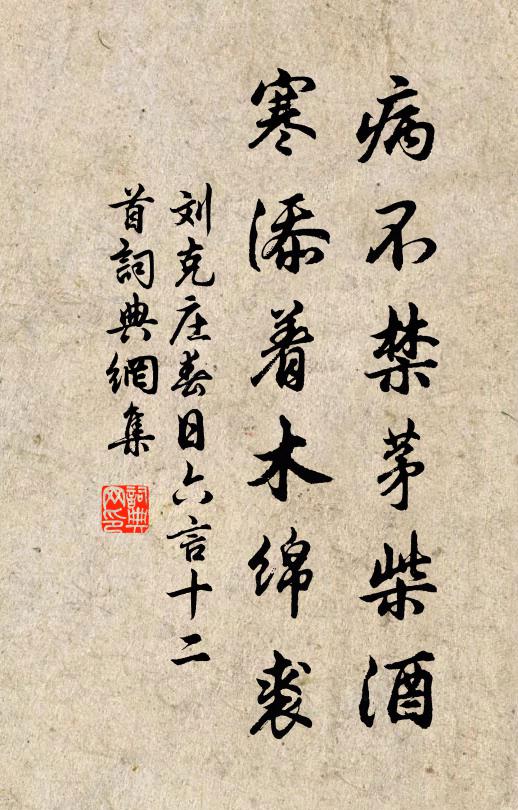 病不禁茅柴酒
寒添着木绵裘
刘克庄春日六言十二
首詞典網集
詞典
网印